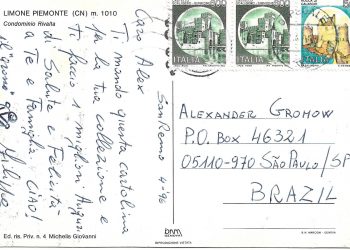 LIMONE PIEMONTE (CN) m. 1010
Condominio Rivalta
SanRemo 4-96
Caro Alex
Ti mando questa cartolina
per la tua collezione e
Ti faccio i migliori Auguri
di Salute e Felicità
a Te e famiglia CIAO!
ITALIA
ITALIA
ITALIA
ALEXANDER GROMOW
P.O. BOX 46321
05110-970 SÃO PAULO/SP
BRAZIL
Ed. ris. Priv. n. 4 Michelis Giovanni
RIPRODUZIONE VIETATA